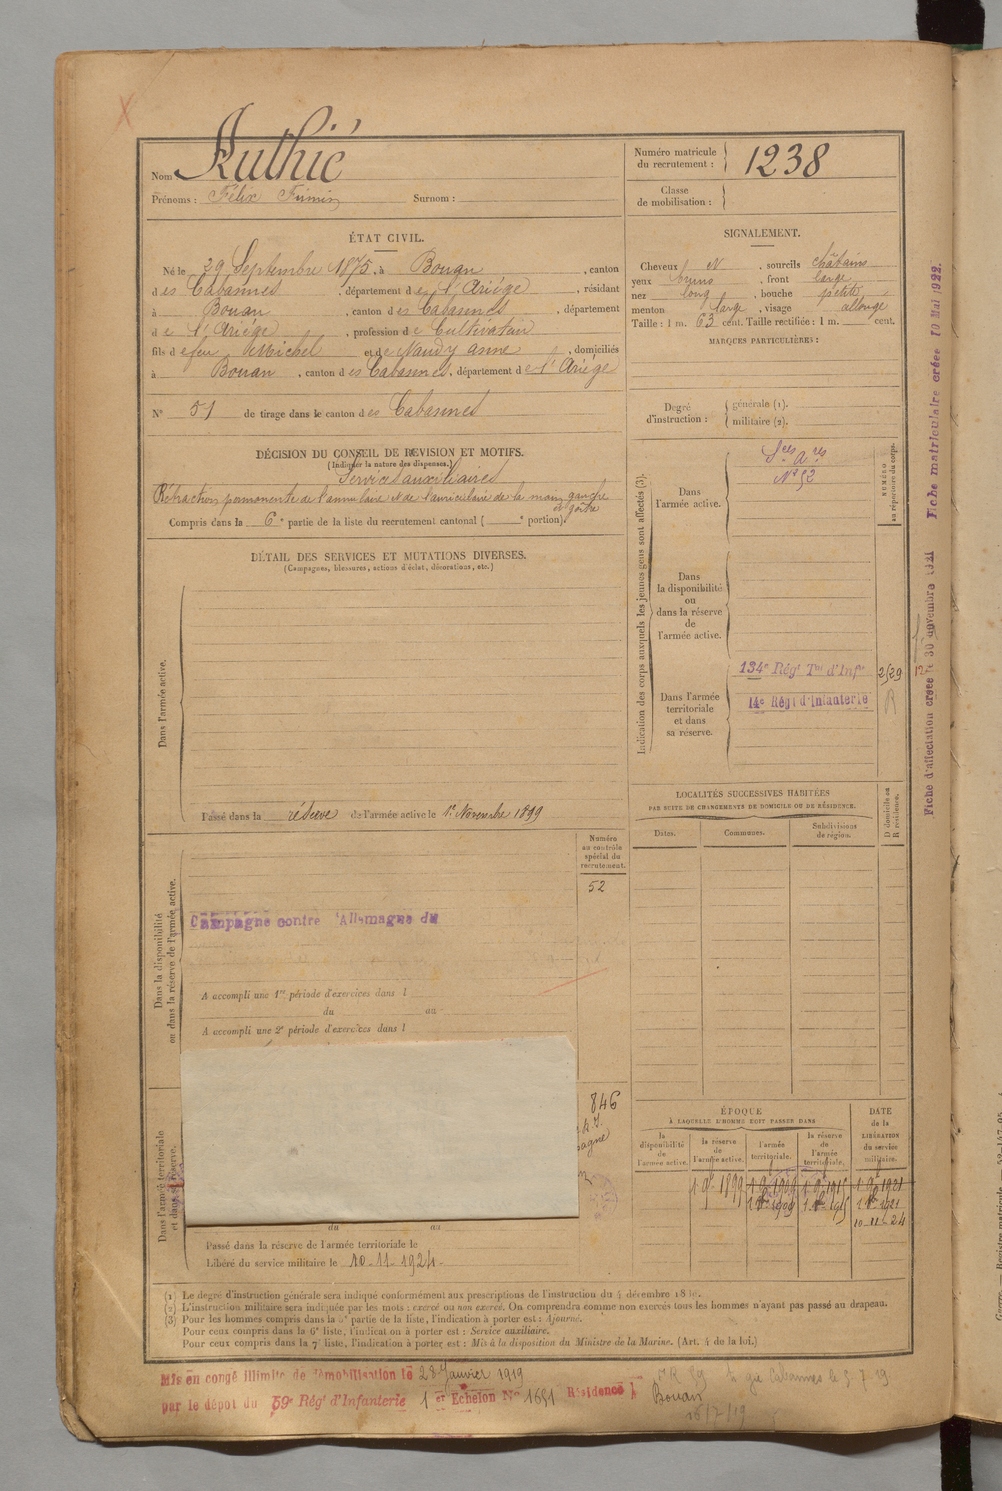 Nom Authié
Prénoms : Félix Firmin Surnom :
Numéro matricule du recrutement : 1238
Classe de mobilisation :
ÉTAT CIVIL.
Né le 29 Septembre 1875, à Bouan, canton
des Cabannes, département de l'Ariège, résidant
à Bouan, canton des Cabannes, département
de l'Ariège, profession de Cultivateur
fils de feu Michel et de Naudy Anne, domiciliés
à Bouan, canton des Cabannes, département de l'Ariège
N° 51 de tirage dans le canton des Cabannes
SIGNALEMENT.
Cheveux N, sourcils châtains
yeux bruns, front large
nez long, bouche petite
menton large, visage allongé
Taille : 1 m. 63 cent. Taille rectifiée : 1 m. cent.
MARQUES PARTICULIÈRES :
Degré d'instruction : générale (1).
militaire (2).
DÉCISION DU CONSEIL DE REVISION ET MOTIFS.
(Indiquer la nature des dispenses.)
Services auxiliaires
Rétraction permanente de l'annulaire et de l'auriculaire de la main gauche
et goître
Compris dans la 6e partie de la liste du recrutement cantonal ( e portion).
DÉTAIL DES SERVICES ET MUTATIONS DIVERSES.
(Campagnes, blessures, actions d'éclat, décorations, etc.)
Dans l'armée active.
Passé dans la réserve de l'armée active le 1er Novembre 1899
Indication des corps auxquels les jeunes gens sont affectés (3).
NUMÉRO au répertoire du corps.
Dans l'armée active.
Sces Ares
N° 52
Dans la disponibilité ou dans la réserve de l'armée active.
Dans l'armée territoriale et dans sa réserve.
134e Régt Tal d'Infie 2529
14e Régt d'Infanterie R
LOCALITÉS SUCCESSIVES HABITÉES
PAR SUITE DE CHANGEMENTS DE DOMICILE OU DE RÉSIDENCE.
D domicile ou R résidence.
Dates. Communes. Subdivisions de région.
Dans la disponibilité ou dans la réserve de l'armée active.
Numéro au contrôle spécial du recrutement.
52
Campagne contre l'Allemagne du
A accompli une 1re période d'exercices dans l
du au
A accompli une 2e période d'exercices dans l
Dans l'armée territoriale et dans sa réserve.
846
du au
Passé dans la réserve de l'armée territoriale le
Libéré du service militaire le 10-11-1924
ÉPOQUE
À LAQUELLE L'HOMME DOIT PASSER DANS
DATE de la LIBÉRATION du service militaire.
la disponibilité de l'armée active. la réserve de l'armée active. l'armée territoriale. la réserve de l'armée territoriale.
1 9bre 1899 1 9 1909 1 9 1915 1 9 1921
1 8bre 1909 1 8bre 1915 1 8bre 1921
10-11-24
(1) Le degré d'instruction générale sera indiqué conformément aux prescriptions de l'instruction du 4 décembre 1889.
(2) L'instruction militaire sera indiquée par les mots : exercé ou non exercé. On comprendra comme non exercés tous les hommes n'ayant pas passé au drapeau.
(3) Pour les hommes compris dans la 5e partie de la liste, l'indication à porter est : Ajourné.
Pour ceux compris dans la 6e liste, l'indication à porter est : Service auxiliaire.
Pour ceux compris dans la 7e liste, l'indication à porter est : Mis à la disposition du Ministre de la Marine. (Art. 4 de la loi.)
Mis en congé illimité de démobilisation le 28 Janvier 1919
par le dépôt du 59e Régt d'Infanterie 1er Echelon No 1651 Résidence à Bouan
Cabannes le 5.7.19
16/7/19
Fiche d'affectation créée le 30 novembre 1921 Fiche matriculaire créée 10 Mai 1922.